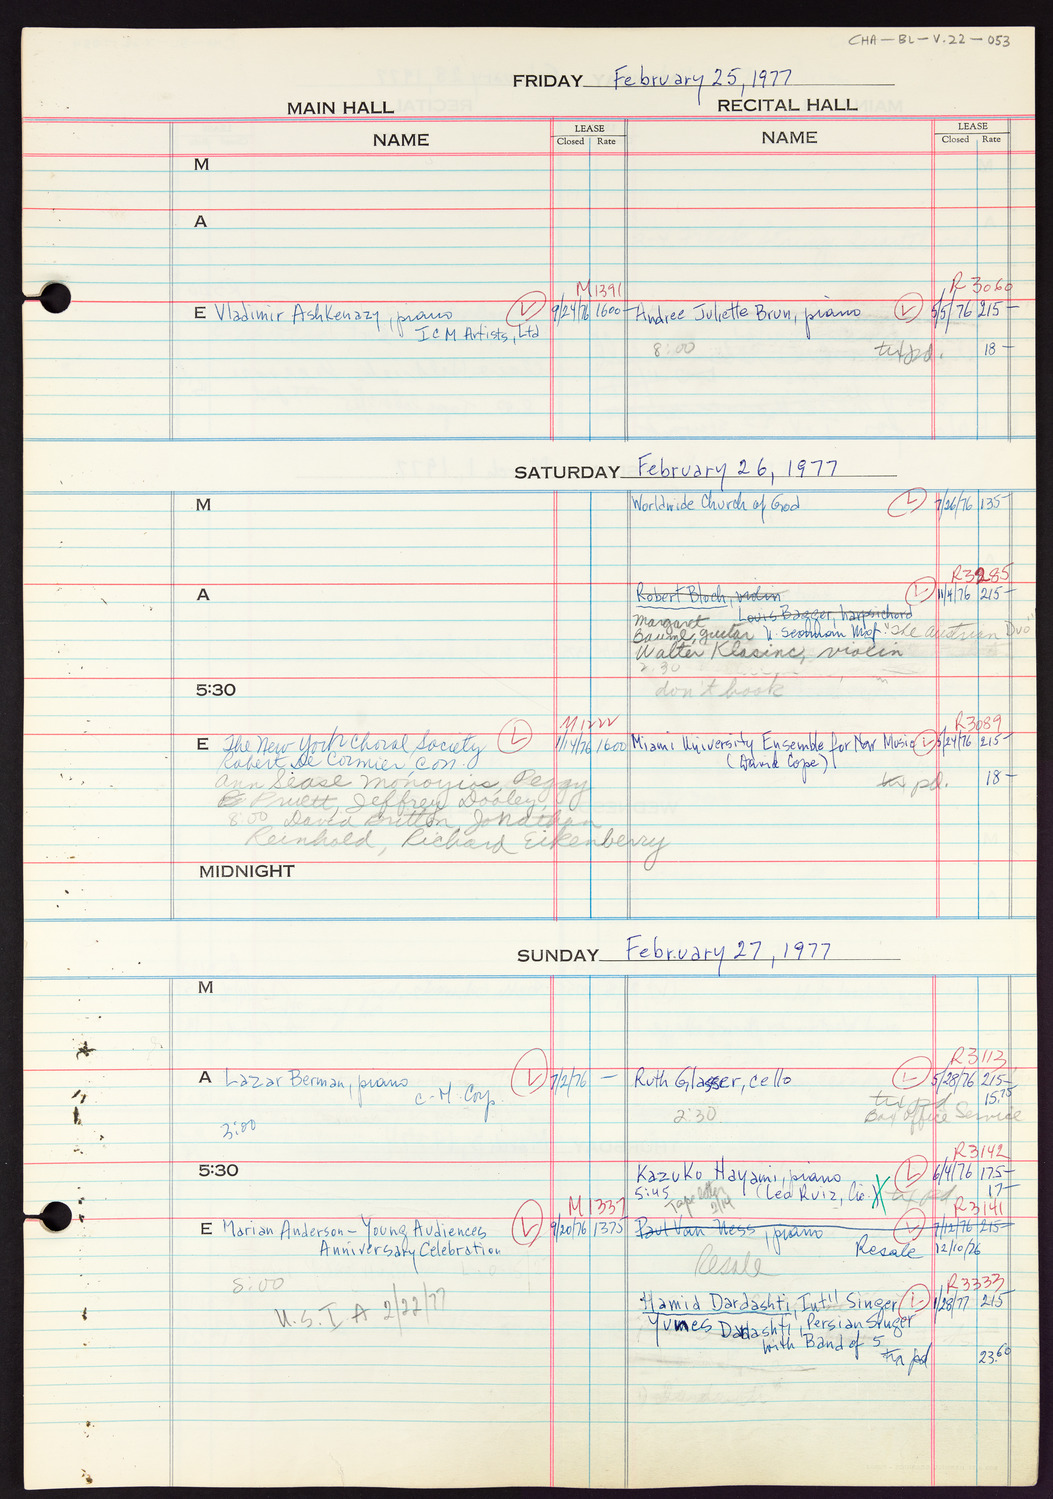 CHA-BL-V.22-053
FRIDAY February 25, 1977
MAIN HALL RECITAL HALL
NAME LEASE Closed Rate NAME LEASE Closed Rate
M
A
M1391 R3060
E Vladimir Ashkenazy, piano L 9/24/76 1600- Andree Juliette Brun, piano L 5/5/76 215-
ICM Artists, Ltd
8:00 tax pd. 18-
SATURDAY February 26, 1977
M Worldwide Church of God L 7/26/76 135-
R3285
A Robert Bloch, violin L 11/4/76 215-
Louis Bagger, harpsichord
Margaret
Bauml, guitar N. Seaman Mgt "The Austrian Duo"
Walter Klasinc, violin
2:30
5:30 don't book
M1222 R3089
E The New York Choral Society L 1/14/76 1600 Miami University Ensemble for New Music L 5/24/76 215-
Robert De Cormier, con. (David Cope)
Ann Sease Monoyios, Peggy tax pd. 18-
Pruett, Jeffrey Dooley,
8:00 David Britton, Jonathan
Reinhold, Richard Eikenberry
MIDNIGHT
SUNDAY February 27, 1977
M
R3113
A Lazar Berman, piano L 7/2/76 - Ruth Glasser, cello L 5/28/76 215-
C-M Corp. tax pd 15.75
3:00 2:30 Box Office Service
R3142
5:30 Kazuko Hayami, piano L 6/4/76 175-
5:45 (Leo Ruiz, Inc.) X tax pd 17-
2/14
M1337 R3141
E Marian Anderson - Young Audiences L 9/20/76 1375 Paul Van Ness, piano L 7/12/76 215-
Anniversary Celebration Resale 12/10/76
8:00 Resale
U.S.I A 2/22/77
R3333
Hamid Dardashti, Int'l Singer L 1/28/77 215
Yunes Dardashti, Persian Singer
with Band of 5
tax pd 23.60